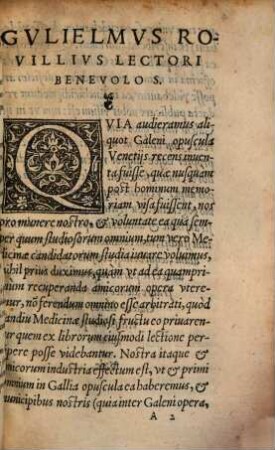 GVLIELMVS RO-
VILLIVS LECTORI
BENEVOLO S.
QVIA audieramus ali
quot Galeni opuscula
Venetijs recens inuen
ta fuisse, quæ nusquam
post hominum memo
riam visa fuissent, nos
pro munere nostro, & voluntate ea qua sem-
per quum studiosorum omnium, tum vero Me-
dicinæ candidatorum studia iuuare volumus,
nihil prius duximus, quam vt ad ea quampri-
mum recuperanda amicorum opera vtere-
mur, nō ferendum omnino esse arbitrati, quod
tandiu Medicinæ studiosi fructu eo priuaren-
tur quem ex librorum eiusmodi lectione per-
cipere posse videbantur. Nostra itaque &
amicorum industria effectum est, vt & primi
omnium in Gallia opuscula ea haberemus, &
municipibus nostris (quia inter Galeni opera,
A 2